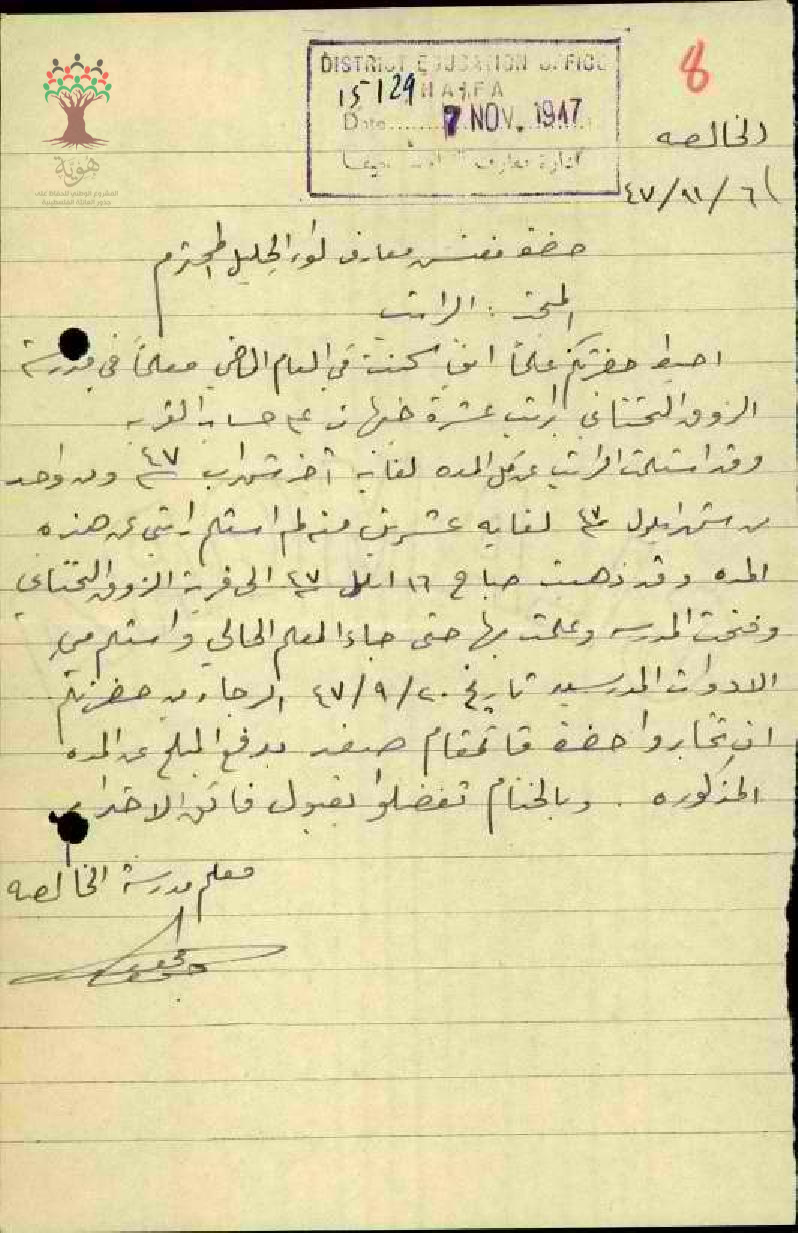 8
DISTRICT EDUCATION OFFICE
HAIFA
15129
Date 7 NOV. 1947
هوية
المشروع الوطني للحفاظ على
جذور العائلة الفلسطينية
الخالصه
٤٧/١١/٦
حضرة مفتش معارف لواء الجليل المحترم
المبحث : الراتب
احيط حضرتكم علماً انني كنت في العام الماضي معلماً في مدرسة
الزوق التحتاني براتب عشرة جنيهات على حساب القريه
وقد استلمت الراتب عن كل المده لغاية آخر شهر اب ٤٧ ومن واحد
من شهر ايلول ٤٧ لغاية عشرين منه لم استلم راتبي عن هذه
المده وقد ذهبت صباح ١٦ ايلول ٤٧ الى قرية الزوق التحتاني
وفتحت المدرسه وعلمت بها حتى جاء المعلم الحالي واستلم مني
الادوات المدرسيه تاريخ ٤٧/٩/٢٠ الرجاء من حضرتكم
ان تخابروا حضرة قائمقام صفد بدفع المبلغ عن المده
المذكوره . وبالختام تفضلوا بقبول فائق الاحترام
معلم مدرسة الخالصه